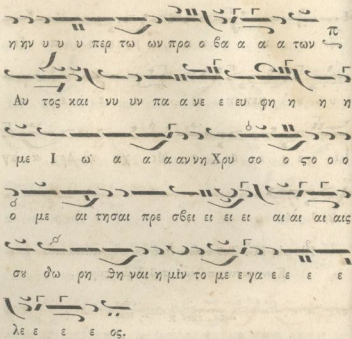 η ην υ υ υ περ τω ων προ ο βα α α α των
Αυ τος και νυ υν πα α νε ε ευ φη η η η
με Ι ω α α α αν νη Χρυ σο ο ςο ο ο
ο με αι τησαι πρε σβει ει ει ει αι αι αι αις
σου δω ρη θη ναι η μιν το με ε γα ε ε ε ε
λε ε ε ε ος.